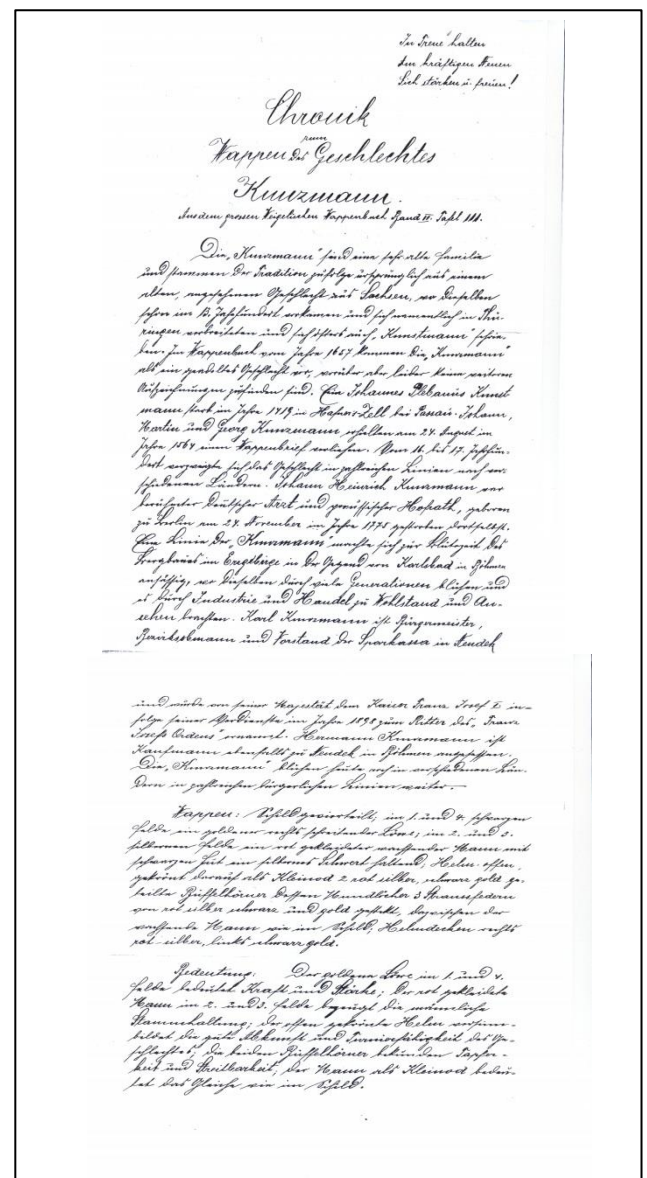 In Treue halten
Am kräftigen Neuen
Sich stärken u. freuen!
Chronik
zum
Wappen des Geschlechtes
Kunzmann.
Aus dem grossen Weigelischen Wappenbuch Band II. Tafel 111.
Die „Kunzmann" sind eine sehr alte Familie
und stammen der Tradition zufolge ursprünglich aus einem
alten, angesehenen Geschlecht aus Sachsen, wo dieselben
schon im 13. Jahrhundert vorkamen und sich namentlich in Thü-
ringen verbreiteten und sich öfters auch „Kunstmann" schrie-
ben. Im Wappenbuch vom Jahre 1657 kommen die „Kunzmann"
als ein geadeltes Geschlecht vor, worüber aber leider keine weiteren
Aufzeichnungen zu finden sind. Ein Johannes Plebanus Kunst
mann starb im Jahre 1419 in Hafner-Zell bei Passau. Johann,
Martin und Georg Kunzmann erhielten am 24. August im
Jahre 1564 einen Wappenbrief verliehen. Vom 16. bis 17. Jahrhun-
dert verzweigte sich das Geschlecht in zahlreichen Linien nach ver-
schiedenen Ländern. Johann Heinrich Kunzmann war
berühmter Deutscher Arzt und preussischer Hofrath, geboren
zu Berlin am 24. November im Jahre 1775 gestorben dortselbst.
Eine Linie der „Kunzmann" machte sich zur Blütezeit des
Bergbaues im Erzgebirge in der Gegend von Karlsbad in Böhmen
ansässig, wo dieselben durch viele Generationen blühen und
es durch Industrie und Handel zu Wohlstand und An-
sehen brachten. Karl Kunzmann ist Bürgermeister,
Bezirksobmann und Vorstand der Sparkassa in Neudek
und wurde von seiner Majestät dem Kaiser Franz Josef I. in-
folge seiner Verdienste im Jahre 1898 zum Ritter des „Franz
Josefs Ordens" ernannt. Hermann Kunzmann ist
Kaufmann ebenfalls zu Neudek in Böhmen angesessen.
Die „Kunzmann" blühen heute noch in verschiedenen Län-
dern in zahlreichen bürgerlichen Linien weiter.—
Wappen: Schild geviertteilt; im 1. und 4. schwarzen
Felde ein goldener rechts schreitender Löwe; im 2. und 3.
silbernen Felde ein rot gekleideter wachsender Mann mit
schwarzen Hut ein silbernes Schwert haltend; Helm offen,
gekrönt darauf als Kleinod 2 rot silber, schwarz gold ge-
teilte Büffelhörner dessen Mundlöcher 3 Straussfedern
von rot silber schwarz und gold gesteckt, dazwischen der
wachsende Mann wie im Schild, Helmdecken rechts
rot-silber, links schwarz gold.
Bedeutung: Der goldene Löwe im 1. und 4.
Felde bedeutet Kraft und Stärke; der rot gekleidete
Mann im 2. und 3. Felde bezeugt die männliche
Stammhaltung; der offen gekrönte Helm versinn-
bildet die gute Abkunft und Turnierfähigkeit des Ge-
schlechtes; die beiden Büffelhörner bekunden Tapfer-
keit und Streitbarkeit; der Mann als Kleinod bedeu-
tet das Gleiche wie im Schild.